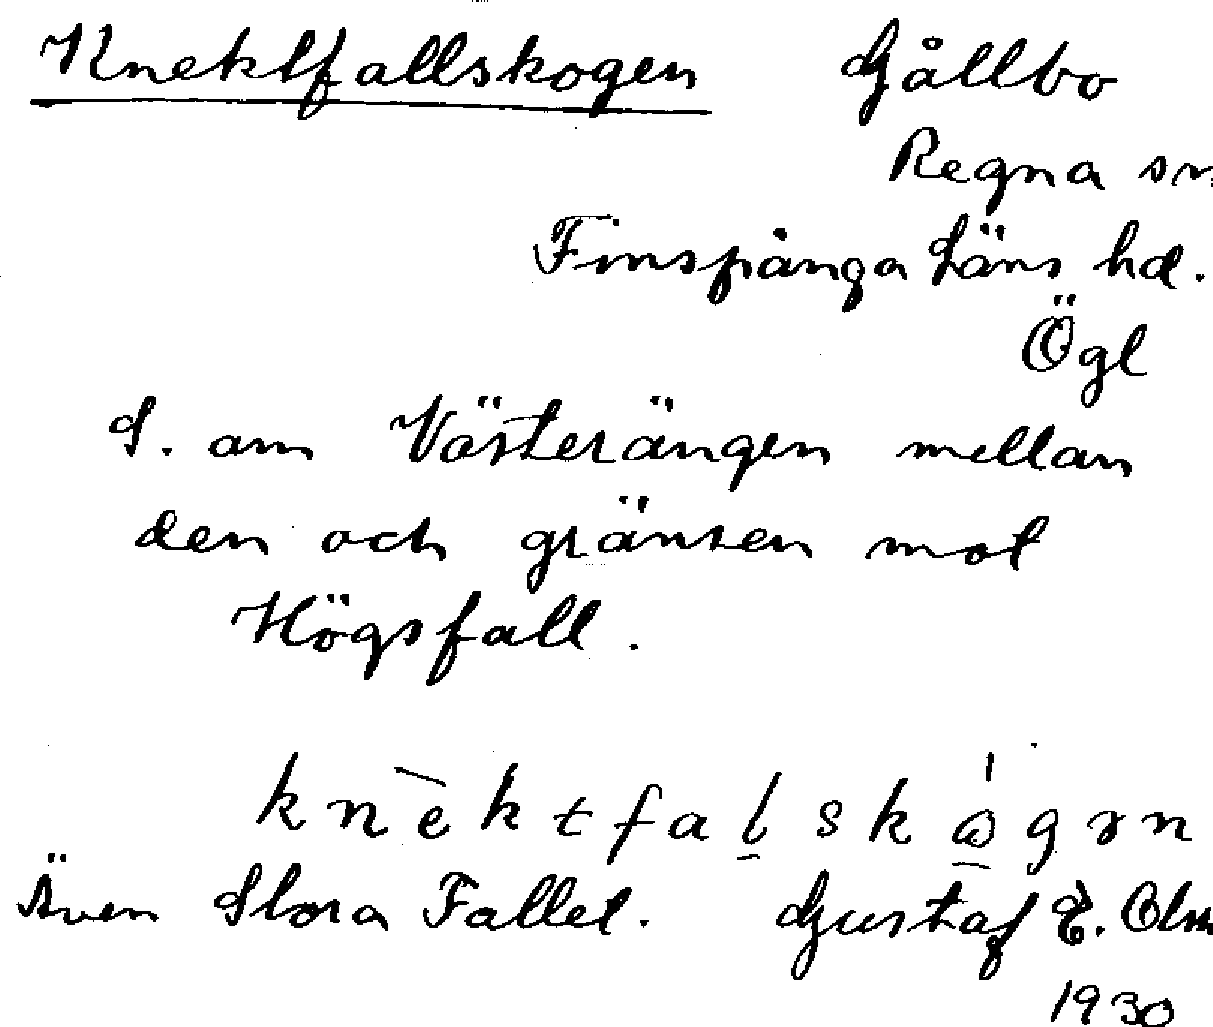 Knektfallskogen Gållbo
Regna sn
Finspånga Läns hd.
Ögl
S. om Västerängen mellan
den och gränsen mot
Högsfall.
Även Stora Fallet. Gustaf E.
1930